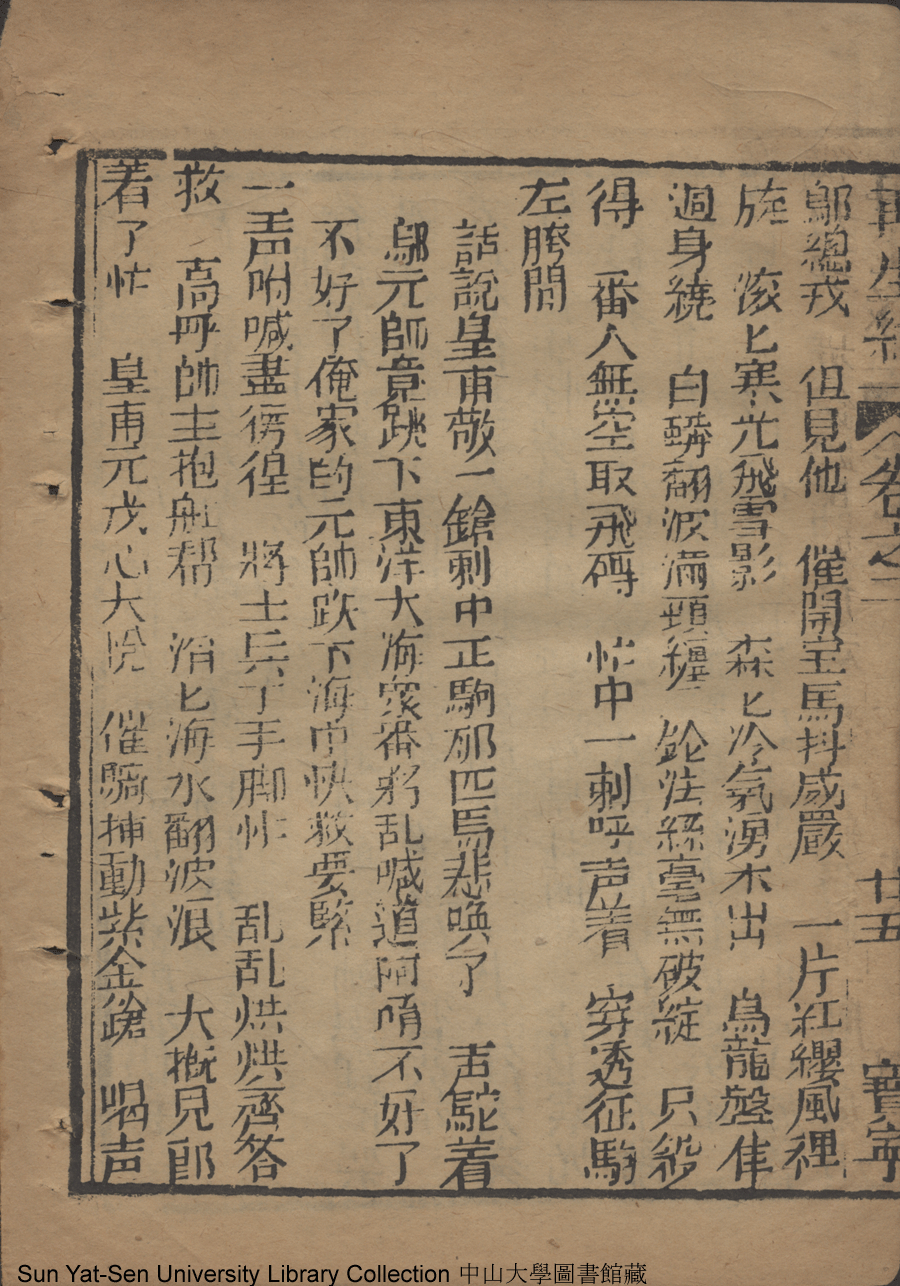 再生緣 卷之二 廿五 寶寧
鄔總戎 但見他 催開宝馬抖威嚴 一片紅纓風裡
旋 滚匕寒光飛雪影 森匕冷氣湧木出 烏龍盤住
過身繞 白蟒翻波满頭纏 鎗法絲毫無破綻 只殺
得 番人無空取飛磚 忙中一刺呼声着 穿透征駒
左胯間
話說皇甫敬一鎗刺中正駒那匹馬悲喚了 声駝着
鄔元師竟跳下東洋大海衆番軍乱喊道阿唷不好了
不好了俺家的元帥跌下海中快救要緊
一声吶喊盡徬徨 將士兵丁手脚忙 乱乱烘烘齊答
救 高呼帥主抱船帮 滔匕海水翻波浪 大概見郎
着了忙 皇甫元戎心大悅 催騎捕動紫金鎗 喝声
Sun Yat-Sen University Library Collection 中山大學圖書館藏